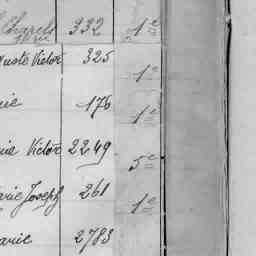 Charels 332 1e
uste Victor 325
1e
ie 176
1e
ie Victor 2249
5e
arie Joseph 261
1e
arie 2783